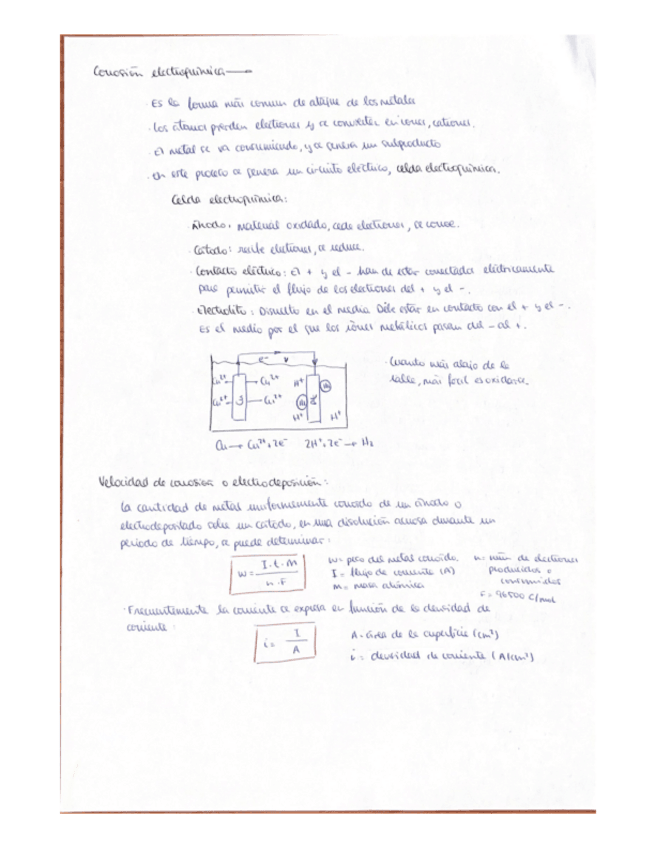 Corrosión electroquímica →
· Es la forma más comun de ataque de los metales
· Los átomos pierden electrones y se convierten en iones, cationes.
· El metal se va consumiendo, y se genera un subproducto
· En este proceso se genera un circuito eléctrico, celda electroquímica.
Celda electroquímica:
· Ánodo: material oxidado, cede electrones, se corroe.
· Cátodo: recibe electrones, se reduce.
· Contacto eléctrico: El + y el - han de estar conectados eléctricamente
para permitir el flujo de los electrones del + y el -.
· Electrolito: Disuelto en el media. Debe estar en contacto con el + y el -.
Es el medio por el que los iones metálicos pasan del - al +.
e⁻
Cu²⁺ Cu²⁺ H⁺
Cu²⁺ Cu²⁺ H⁺ H⁺
Cu → Cu²⁺+2e⁻ 2H⁺+2e⁻ → H₂
· Cuanto más abajo de la
tabla, más facil es oxidarse.
Velocidad de corrosión o electrodeposición:
La cantidad de metal uniformemente corroido de un ánodo o
electrodepositado sobre un cátodo, en una disolución acuosa durante un
periodo de tiempo, se puede determinar:
w = I·t·M / n·F
w = peso del metal corroído.
I = flujo de corriente (A)
M = masa atómica
n = núm de electrones
producidos o
consumidos
F = 96500 C/mol
· Frecuentemente la corriente se expresa en función de la densidad de
corriente:
i = I / A
A = área de la superficie (cm²)
i = densidad de corriente (A/cm²)